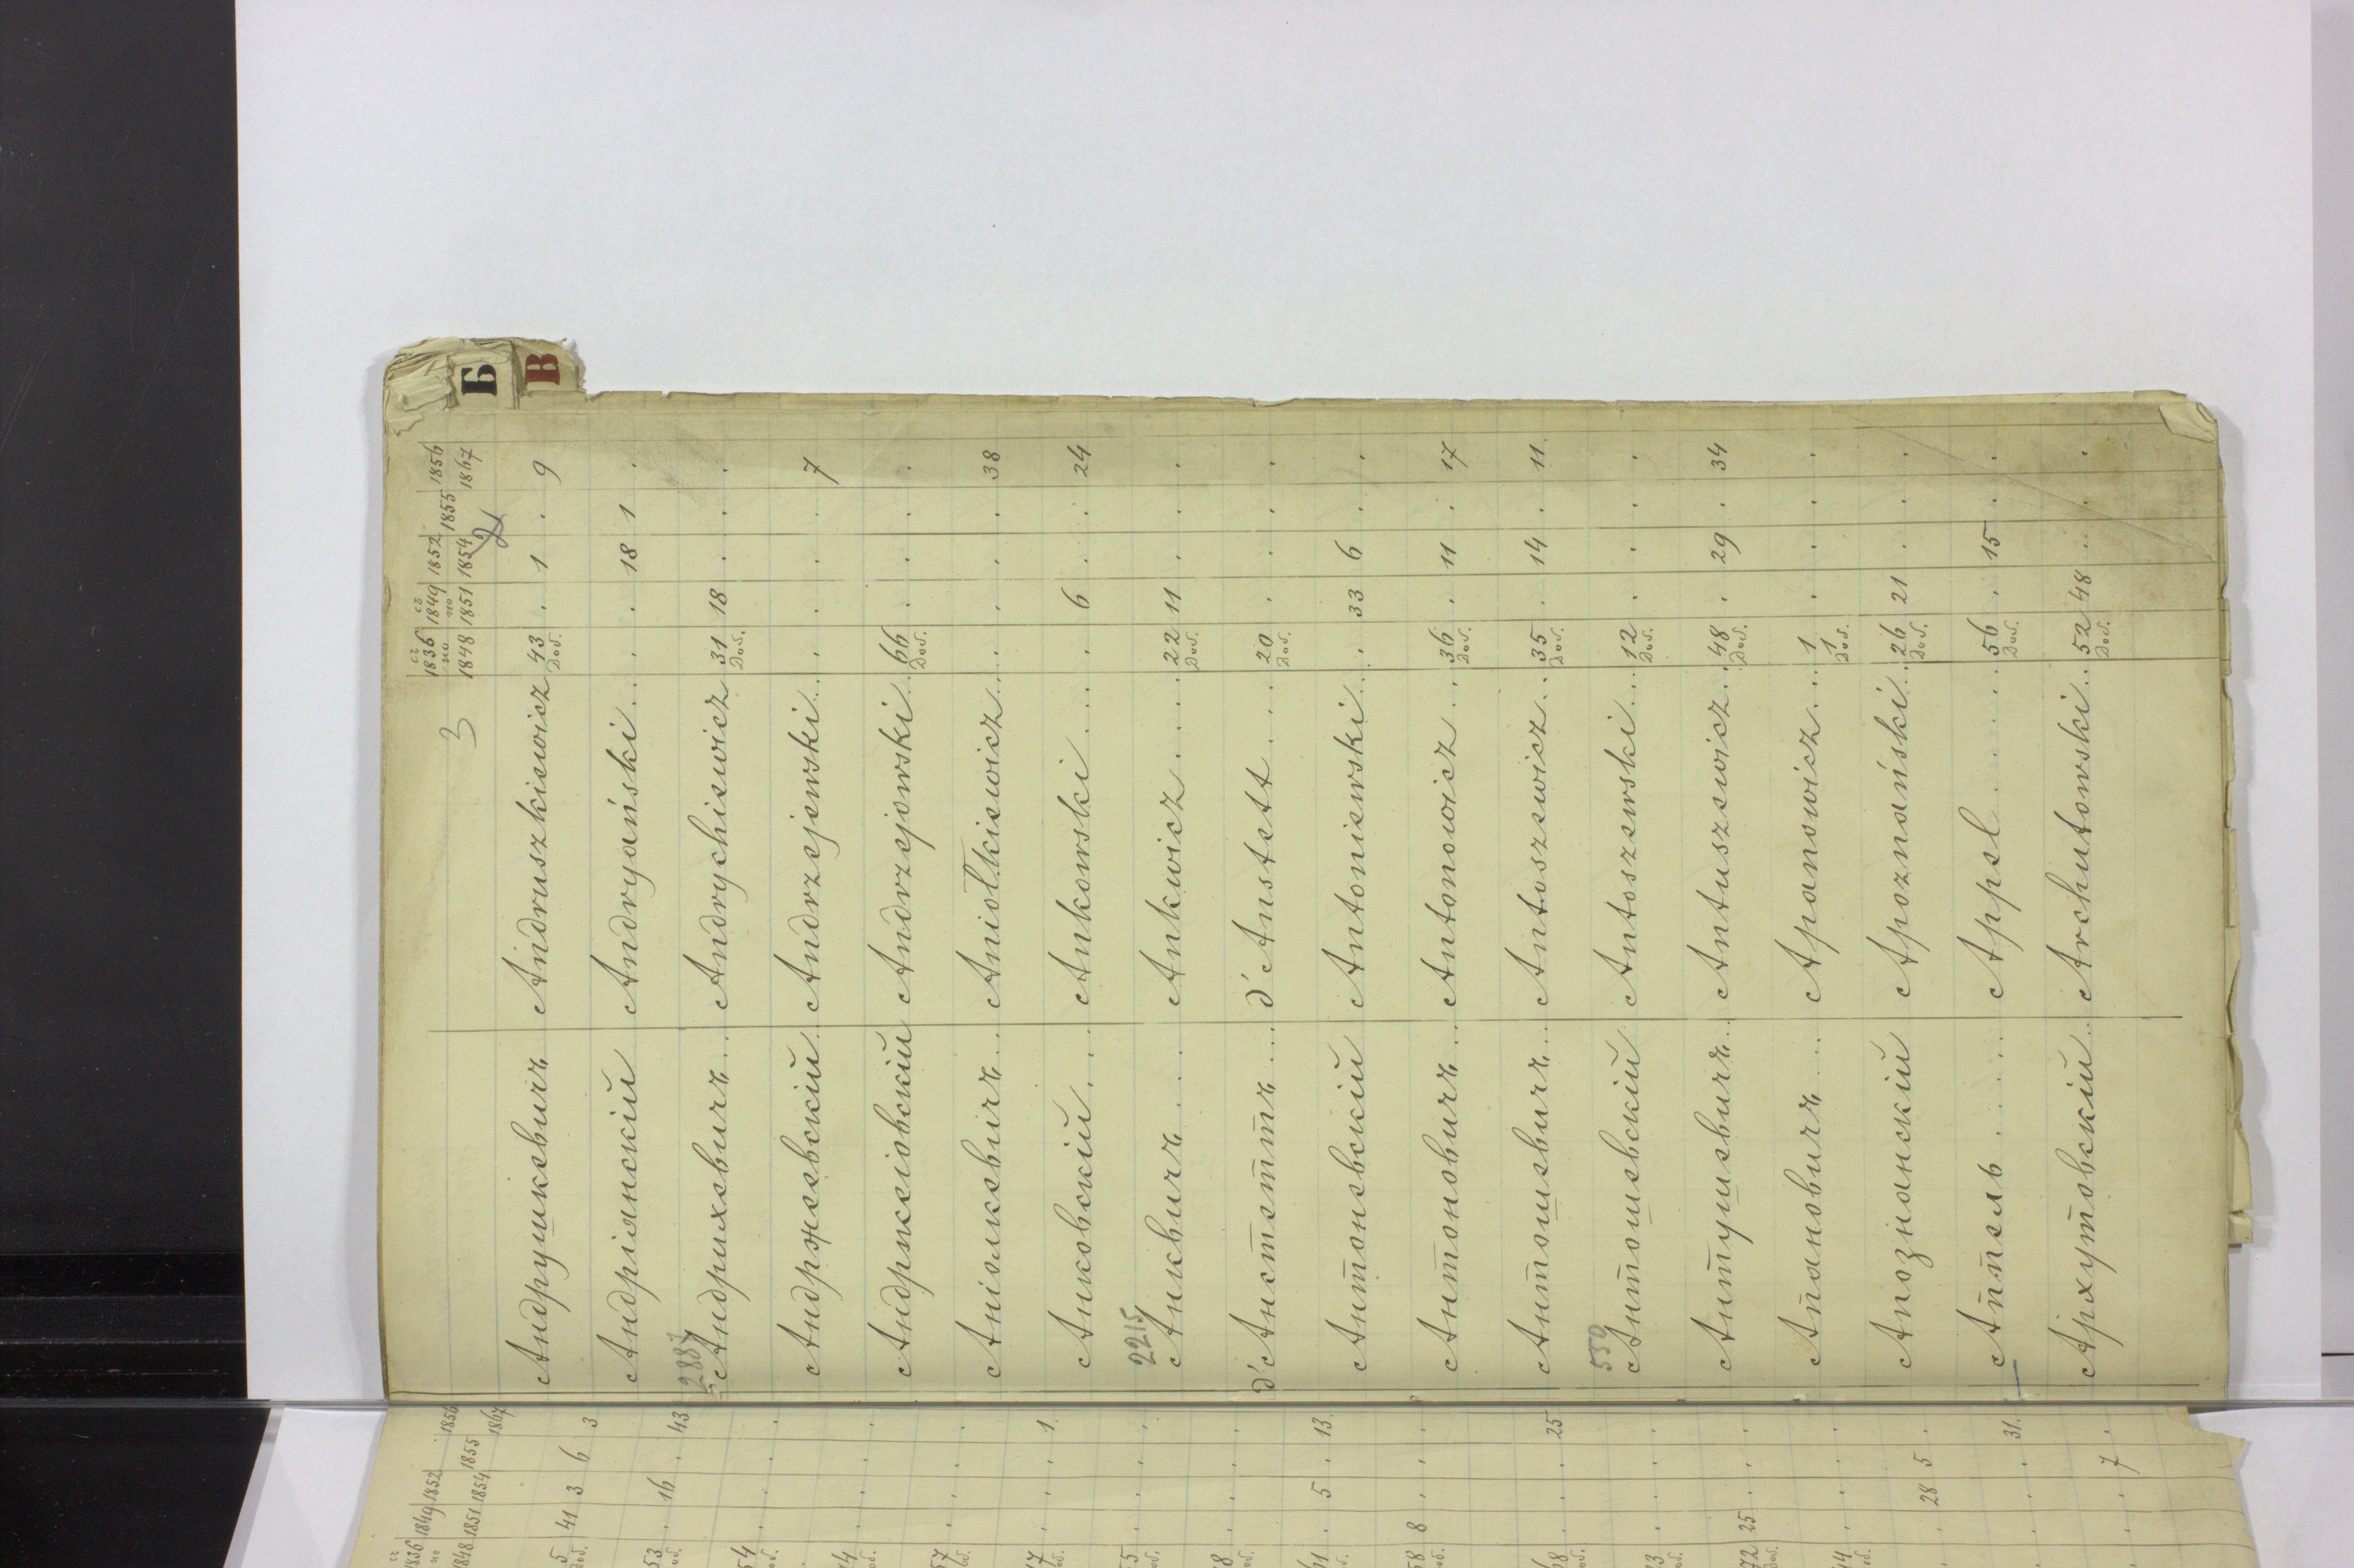 Б
В
3
съ 1836 по 1848 съ 1849 по 1851 1852 1854 1855 1856 1867
2
Андрушкевичъ Andruszkiewicz 43 доб. . 1 . 9
Андріянскій Andryański . . . . 18 1 .
2887 Андрихевичъ . . . Andrychiewicz 31 доб. 18 . . .
Андржеевскій . . Andrzejewski . . . . . . . 7
Андржеіовскій Andrzejowski . . 66 доб. . . . .
Аніолкевичъ . . . Aniołkiewicz . . . . . . 38
Анковскій . . . Ankowski . . . . 6 . . 24
2215 Анквичъ . . . Ankwicz . . . . 22 доб. 11 . . .
д'Анстеттъ . . . . d'Anstett . . . . 20 доб. . . . .
Антоневскій Antoniewski . . . 33 6 . .
Антоновичъ . . . Antonowicz . . . 36 доб. . 11 . 17
Антошевичъ . . . Antoszewicz . . . 35 доб. . 14 . 11
550 Антошевскій Antoszewski . . . 12 доб. . . . .
Антушевичъ . . . Antuszewicz . . . 48 доб. . 29 . 34
Апановичъ . . . Apanowicz . . . 1 доб. 1 . . . .
Апознанскій Apoznański . . . 26 доб. 21 . . .
Аппель . . . . . Appel . . . . . 56 доб. . 15 . .
Архутовскій . . Archutowski . . . 52 доб. 48 . . .
съ 1836 по 1848 1849 1851 1852 1854 1855 1856 1867
5 доб. 41 3 6 3
53 . 16 . 43
54
57
1
5 . 13
58 доб. 8
25
72 доб. 25
28 5 .
31
7